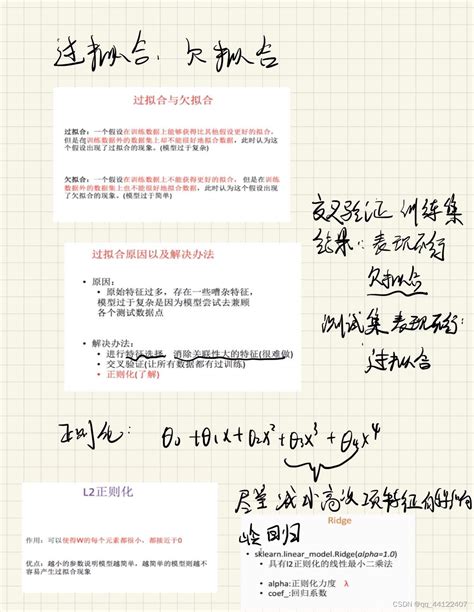 过拟合、欠拟合
过拟合与欠拟合
过拟合：一个假设在训练数据上能够获得比其他假设更好的拟合，
但是在训练数据外的数据集上却不能很好地拟合数据，此时认为这
个假设出现了过拟合的现象。(模型过于复杂)
欠拟合：一个假设在训练数据上不能获得更好的拟合，但是在训练
数据外的数据集上也不能很好地拟合数据，此时认为这个假设出现
了欠拟合的现象。(模型过于简单)
交叉验证 训练集
结果：表现不行
欠拟合
测试集表现不行：
过拟合
过拟合原因以及解决办法
• 原因：
• 原始特征过多，存在一些嘈杂特征，
模型过于复杂是因为模型尝试去兼顾
各个测试数据点
• 解决办法：
• 进行特征选择，消除关联性大的特征(很难做)
• 交叉验证(让所有数据都有过训练)
• 正则化(了解)
正则化：θ0+θ1x+θ2x²+θ3x³+θ4x⁴
尽量减小高次项特征的影响
L2正则化
作用：可以使得W的每个元素都很小，都接近于0
优点：越小的参数说明模型越简单，越简单的模型则越不
容易产生过拟合现象
岭回归
Ridge
• sklearn.linear_model.Ridge(alpha=1.0)
• 具有l2正则化的线性最小二乘法
• alpha:正则化力度 λ
• coef_:回归系数
CSDN @qq_44122407